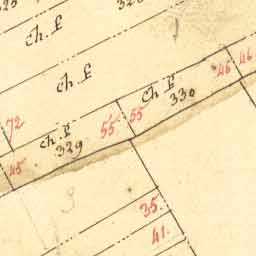 ch. f
ch. f
ch. f
330
46
46
72
55
55
ch. f
329
45
35.
41.